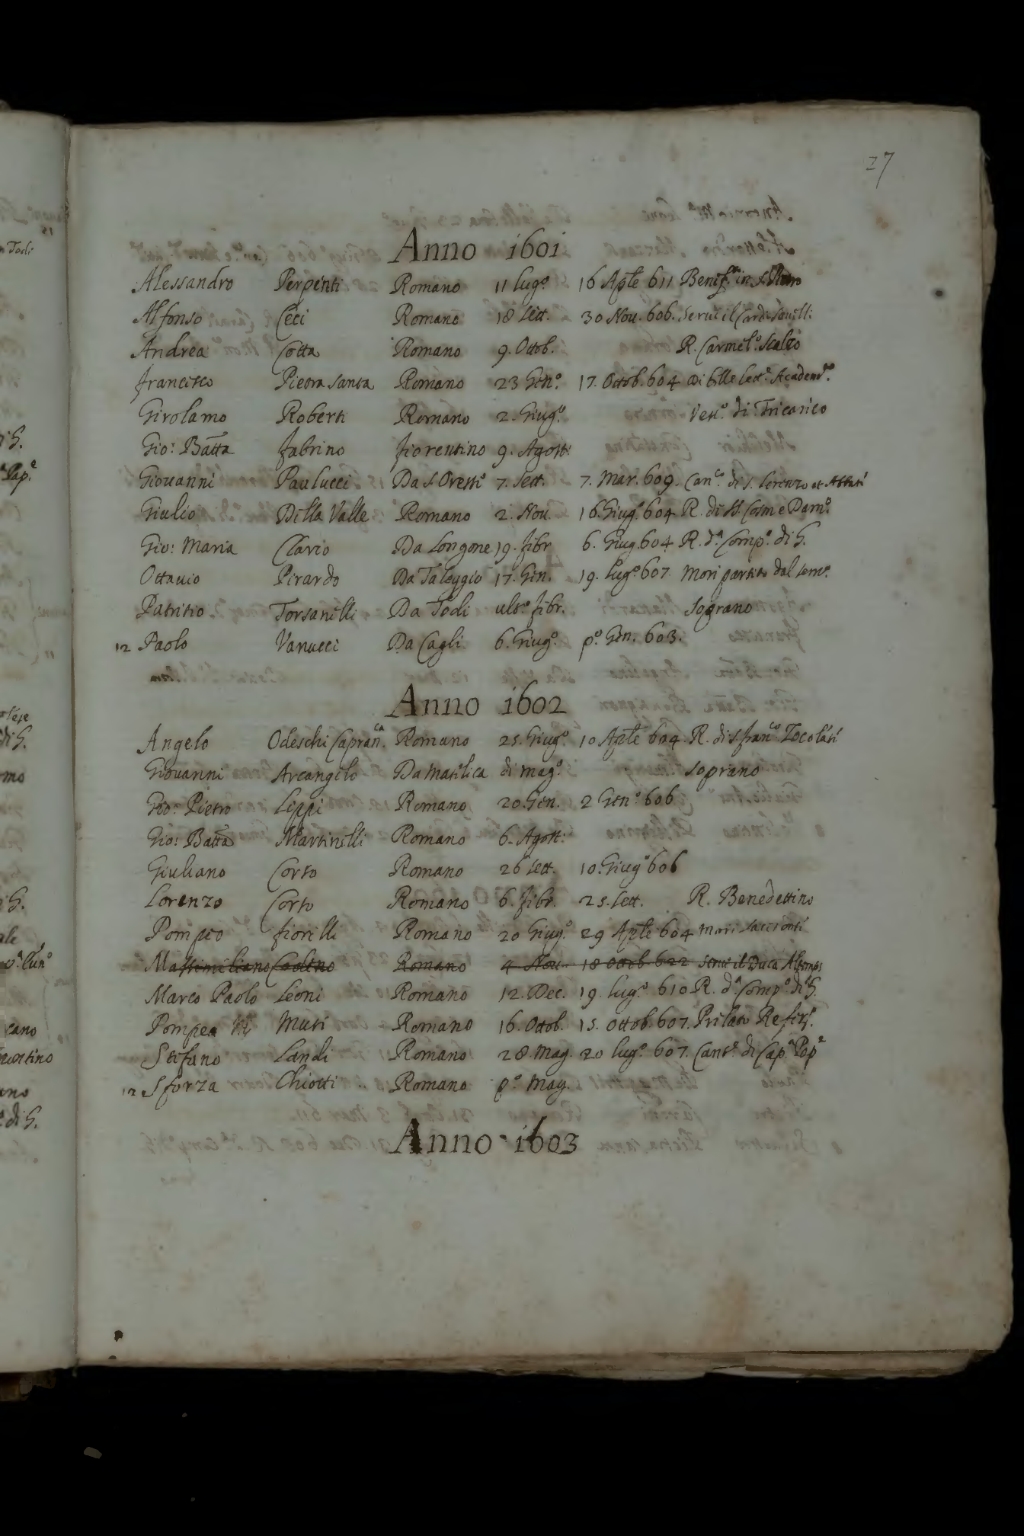 27
Anno 1601
Alessandro Perpenti Romano 11 lugº. 16 Aple 611 Benef. in S. Pietro
Alfonso Ceci Romano 18 sett. 30 Nou. 606. serue il Card.
Andrea Cotta Romano 9. Ottob. R. Carmelº. Scalzo
francisco Pietra santa Romano 23 Genº. 17. Ottob. 604 di belle lett.
Girolamo Roberti Romano 2. Giugº. Vescº. di Tricarico
Gio: Batta fabrino fiorentino 9. Agost:
Giouanni Paulucci Da S. Oresti 7. sett. 7. Mar. 609. Cancº. di S. Lorenzo
Giulio Della Valle Romano 2. Nou. 16. Giugº 604 R. di SS. Cosm e Damº.
Gio: Maria Clario Da Longone 19. fibr 6. Giug. 604 R. dª. Compª. di G.
Ottauio Pirardo Da Taleggio 17. Gen. 19. lugº 607 Mori partito dal semº.
Patritio Torsanelli Da Todi ultº. fibr. Soprano
12 Paolo Vanucci Da Cagli 6. Giugº. pº. Gen. 603.
Anno 1602
Angelo Odeschi Capranca. Romano 25. Giugº. 10 Aple 604 R. di S. francº
Giouanni Arcangelo Da Matilica di magº. Soprano
Gio: Pietro Leppi Romano 20. Gen. 2 Genº 606
Gio: Batta Martinelli Romano 6. Agost:
Giuliano Corto Romano 26 sett. 10. Giugº 606
Lorenzo Corto Romano 6. fibr. 25. sett. R. Benedettino
Pompeo fiorilli Romano 20 Giugº. 29 Aple 604 Mori
Massimiliano Romano 4 Nou. 18 Ottob 622 serue il Duca
Marco Paolo Leoni Romano 12. Dec. 19. lugº 610 R. dª Compª di G.
Pompeo Muti Romano 16. Ottob. 15. ottob. 607. Prilato
Stefano Landi Romano 28. Mag. 20 lugº. 607. Cantº. di Capª Popª
12 Sforza Chiotti Romano pº. Mag.
Anno 1603